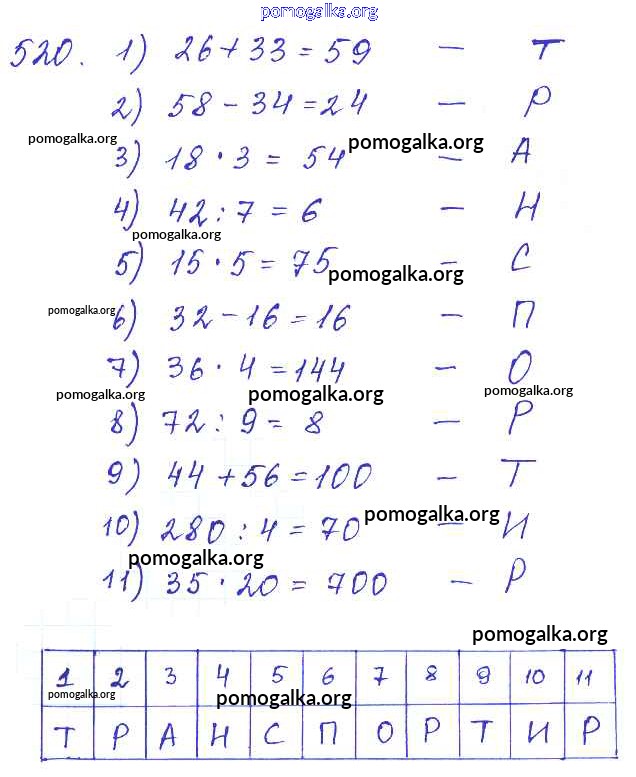 pomogalka.org
520. 1) 26 + 33 = 59 — Т
2) 58 - 34 = 24 — Р
pomogalka.org pomogalka.org
3) 18 · 3 = 54 — А
4) 42 : 7 = 6 — Н
pomogalka.org
5) 15 · 5 = 75 — С
pomogalka.org
pomogalka.org
6) 32 - 16 = 16 — П
7) 36 · 4 = 144 — О
pomogalka.org pomogalka.org pomogalka.org
8) 72 : 9 = 8 — Р
9) 44 + 56 = 100 — Т
pomogalka.org
10) 280 : 4 = 70 — И
pomogalka.org
11) 35 · 20 = 700 — Р
pomogalka.org
1 2 3 4 5 6 7 8 9 10 11
pomogalka.org pomogalka.org
Т Р А Н С П О Р Т И Р